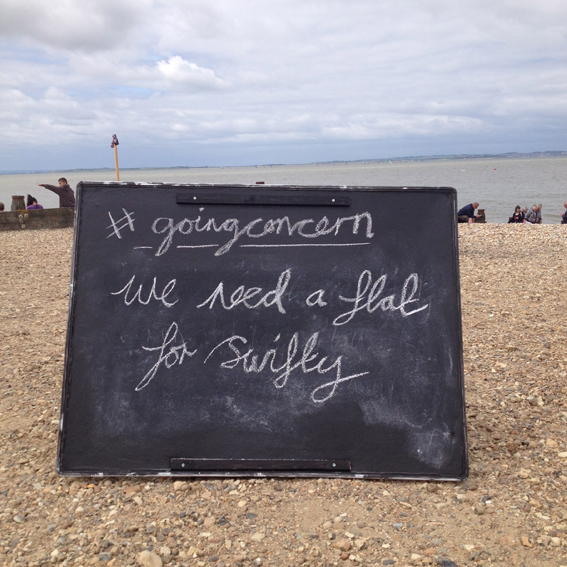 #goingconcern
We need a flat
for Swifty